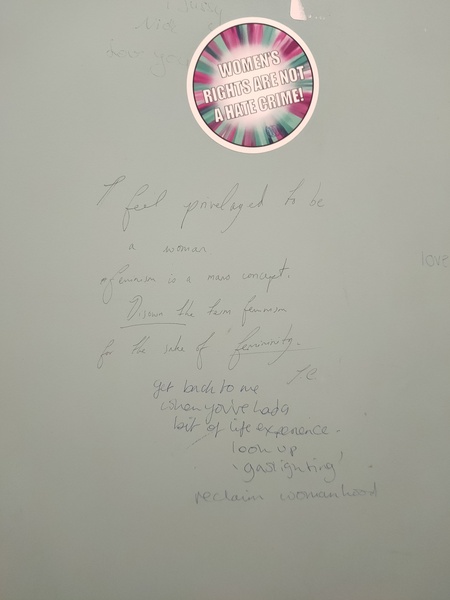 love you
WOMEN'S
RIGHTS ARE NOT
A HATE CRIME!
I feel privelaged to be
a woman
feminism is a mans concept.
Disown the term feminism
for the sake of "femininity.
get back to me
when you've had a
bit of life experience.
look up
'gaslighting'
reclaim womanhood
love